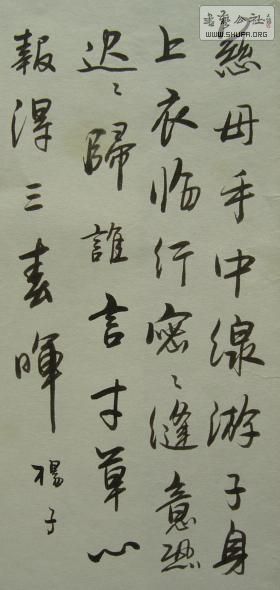 慈母手中線游子身
上衣临行密〻縫意恐
迟〻歸誰言寸草心
報得三春暉
楊子
书艺公社
WWW.SHUFA.ORG